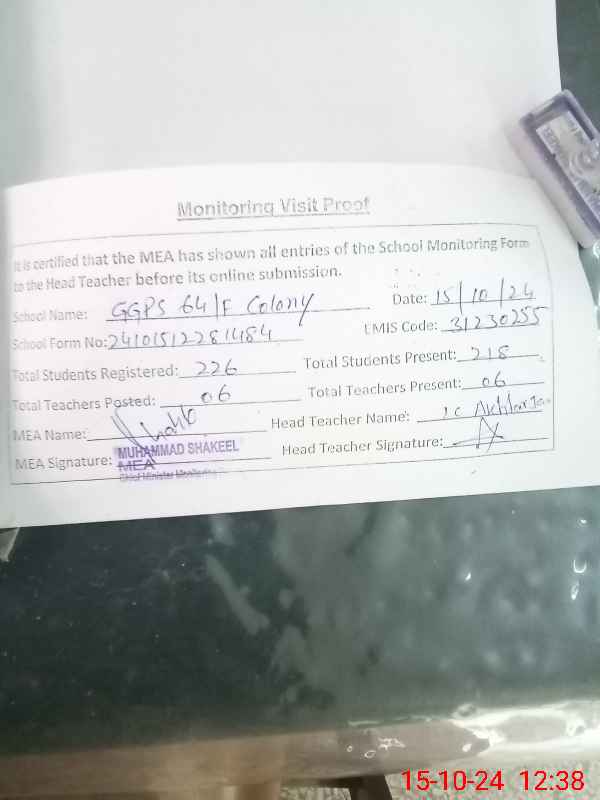 Monitoring Visit Proof
It is certified that the MEA has shown all entries of the School Monitoring Form
to the Head Teacher before its online submission.
School Name: GGPS 64/F Colony Date: 15/10/24
School Form No: 24101512281484 EMIS Code: 31230255
Total Students Registered: 226 Total Students Present: 218
Total Teachers Posted: 06 Total Teachers Present: 06
MEA Name: Head Teacher Name:
MEA Signature: MUHAMMAD SHAKEEL Head Teacher Signature:
MEA
Chief Minister Monitoring
15-10-24 12:38